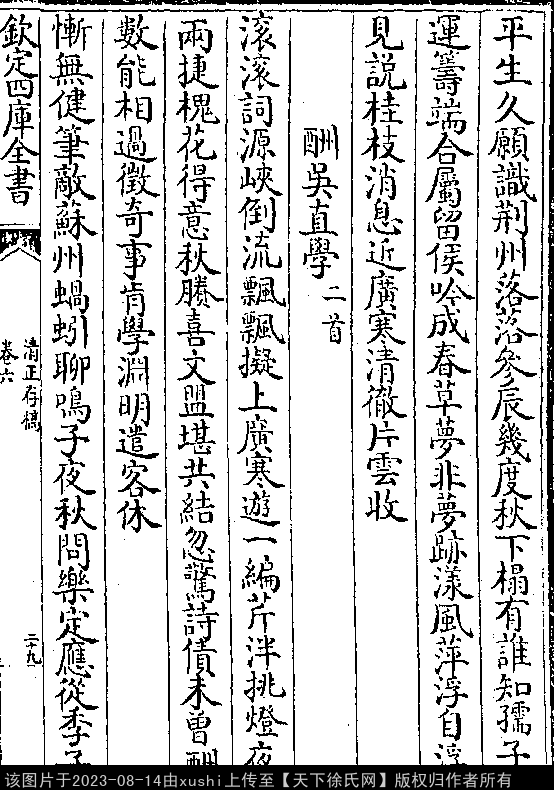 平生久願識荆州落落參辰幾度秋下榻有誰知孺子
運籌端合屬留侯吟成春草夢非夢跡漾風萍浮自浮
見說桂枝消息近廣寒清徹片雲收
酬吳直學二首
滚滚詞源峽倒流飄飄擬上廣寒遊一編芹泮挑燈夜
兩捷槐花得意秋勝喜文盟堪共結忽驚詩債未曾酬
數能相過徵奇事肯學淵明遣客休
慚無健筆敵蘇州蝸蚓聊鳴子夜秋問樂定應從季子
欽定四庫全書
清正存稿
卷六
二十九
该图片于2023-08-14由xushi上传至【天下徐氏网】版权归作者所有